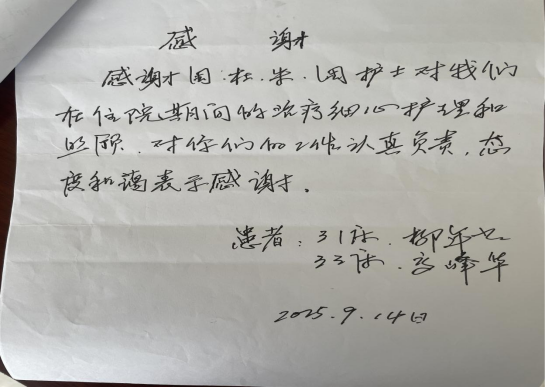 感 谢
感谢周.杜.朱.周护士对我们
在住院期间的治疗细心护理和
照顾.对你们的工作认真负责,态
度和蔼表示感谢。
患者:31床.柳年
33床.高峰华
2025.9.14日